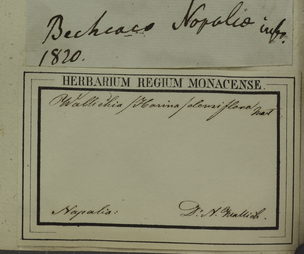 Bechcaco Napalia infr.
1820.
HERBARIUM REGIUM MONACENSE.
Wallichia (Harina) densiflora Mart
Napalia: Dr. N. Wallich.